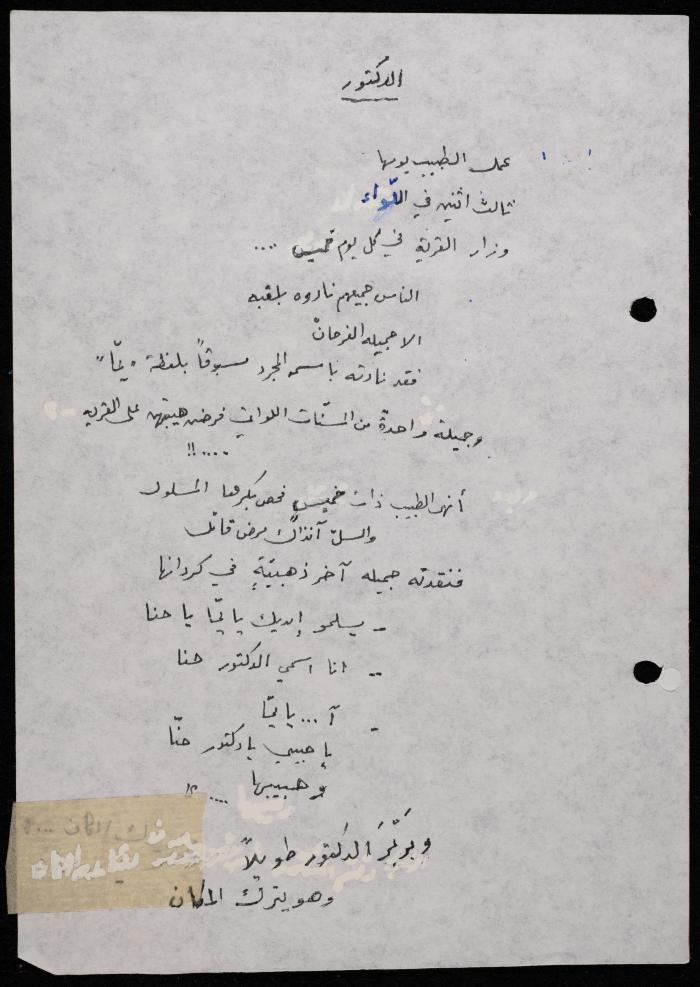 الدكتور
عمل الطبيب يومها
ثالث اثنين في اللّواء
وزار القرية في كل يوم خميس ....
الناس جميعهم نادوه بلقبه
الا جميله الفرحانْ
فقد نادته باسمه المجرد مسبوقاً بلفظة "يمّا"
وجميلة واحدة من المسنّات اللواتي فرضن هيبتهن على القريه
....!!
أنهى الطبيب ذات خميسٍ فحص بكرها المسلول
والسلّ آنذاك مرض قاتل
فنقدته جميله آخر ذهبيّةٍ في كردانها
- يسلمو إيديك يا يمّا يا حنا
-- انا اسمي الدكتور حنا
- آ ... يا يمّا
يا حبيبي يا دكتور حنّا
وهبيبها ....!!
وبَرْبَرَ الدكتور طويلاً
وهو يترك المكان